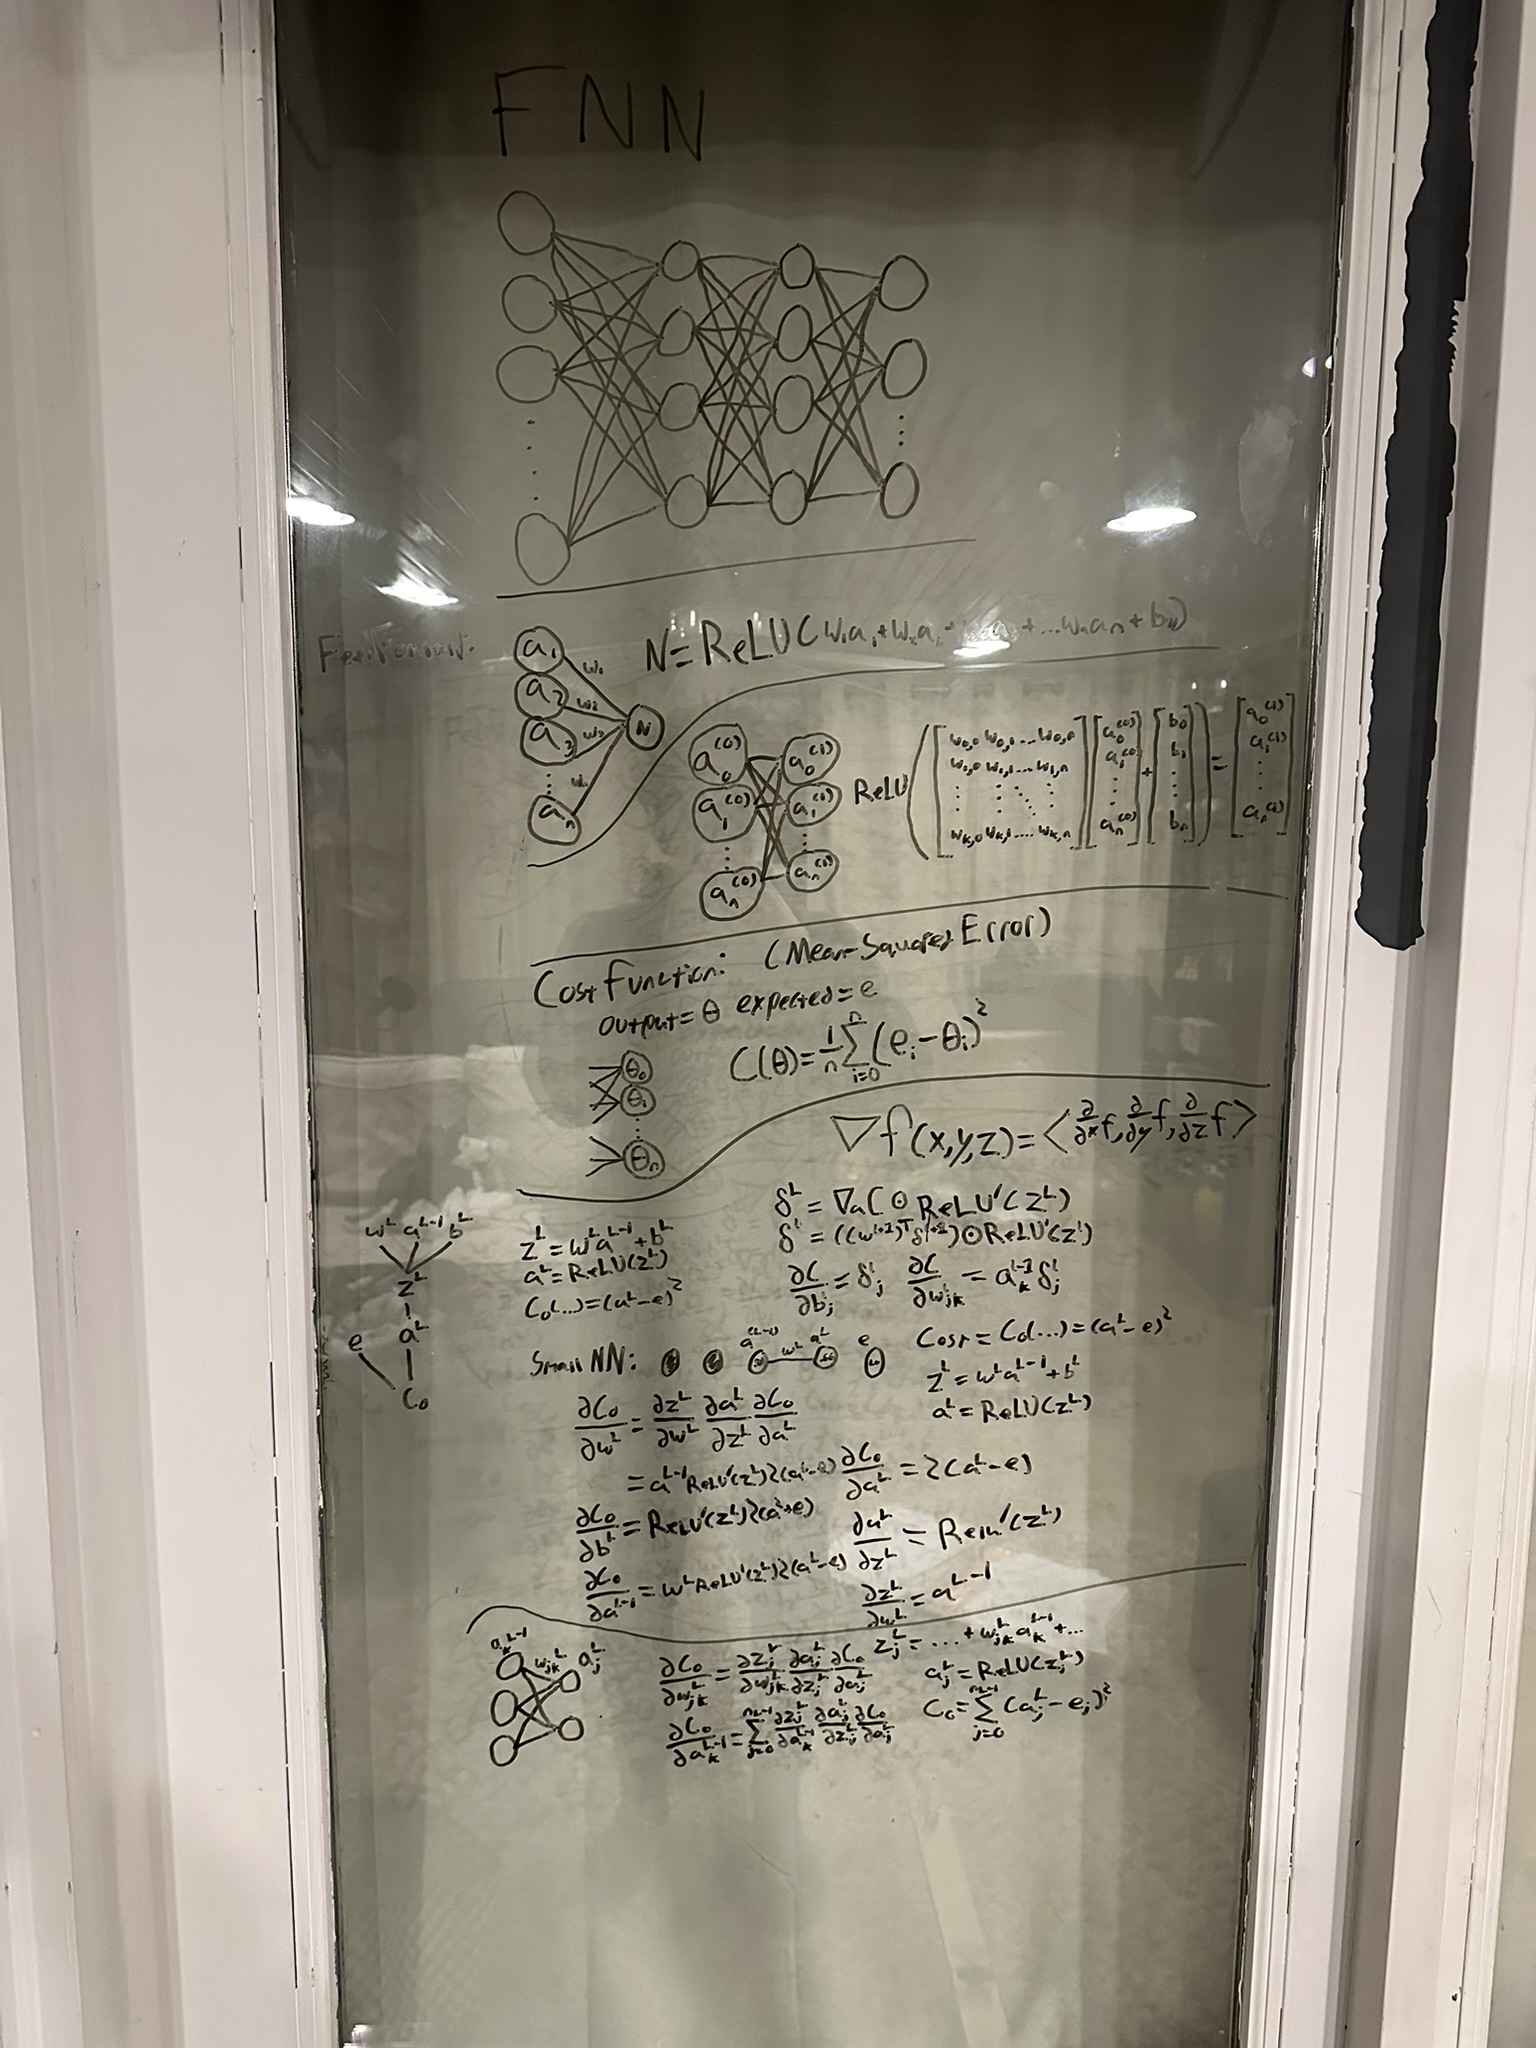 FNN
FeedForward:
a₁ w₁
a₂ w₂
a₃ w₃
N
aₙ
N=ReLU(w₁a₁+w₂a₂+...wₙaₙ+b
a₀⁽⁰⁾ a₀⁽¹⁾
a₁⁽⁰⁾ a₁⁽¹⁾
aₙ⁽⁰⁾ aₙ⁽¹⁾
ReLU([w₀,₀ w₀,₁ ... w₀,ₙ; w₁,₀ w₁,₁ ... w₁,ₙ; w_k,₀ w_k,₁ .... w_k,ₙ][a₀⁽⁰⁾ a₁⁽⁰⁾ aₙ⁽⁰⁾]+[b₀ b₁ bₙ])=[a₀⁽¹⁾ a₁⁽¹⁾ aₙ⁽¹⁾]
Cost Function: (Mean-Squared Error)
output=θ expected=e
θ₀
θ₁
θₙ
C(θ)=1/n Σ_{i=0}^{n} (eᵢ-θᵢ)²
∇f(x,y,z)=<∂/∂x f, ∂/∂y f, ∂/∂z f>
w^L a^{L-1} b^L
z^L
a^L
e
C₀
z^L=w^L a^{L-1}+b^L
a^L=ReLU(z^L)
C₀(...)=(a^L-e)²
δ^L=∇aC⊙ReLU'(z^L)
δ^l=((w^{l+1})^T δ^{l+1})⊙ReLU'(z^l)
∂C/∂b_j^l=δ_j^l ∂C/∂w_jk^l=a_k^{l-1}δ_j^l
Small NN: a^{(L-1)} w^L a^L e
Cost=C₀(...)=(a^L-e)²
z^L=w^L a^{L-1}+b^L
a^L=ReLU(z^L)
∂C₀/∂w^L=∂z^L/∂w^L ∂a^L/∂z^L ∂C₀/∂a^L
=a^{L-1}ReLU'(z^L)2(a^L-e)
∂C₀/∂a^L=2(a^L-e)
∂C₀/∂b^L=ReLU'(z^L)2(a^L-e)
∂a^L/∂z^L=Relu'(z^L)
∂C₀/∂a^{L-1}=w^L ReLU'(z^L)2(a^L-e)
∂z^L/∂w^L=a^{L-1}
a_k^{L-1} w_jk^L a_j^L
∂C₀/∂w_jk^L=∂z_j^L/∂w_jk^L ∂a_j^L/∂z_j^L ∂C₀/∂a_j^L
z_j^L=...+w_jk^L a_k^{L-1}+...
a_j^L=ReLU(z_j^L)
∂C₀/∂a_k^{L-1}=Σ_{j=0}^{n_L-1} ∂z_j^L/∂a_k^{L-1} ∂a_j^L/∂z_j^L ∂C₀/∂a_j^L
C₀=Σ_{j=0}^{n_L-1} (a_j^L-e_j)²